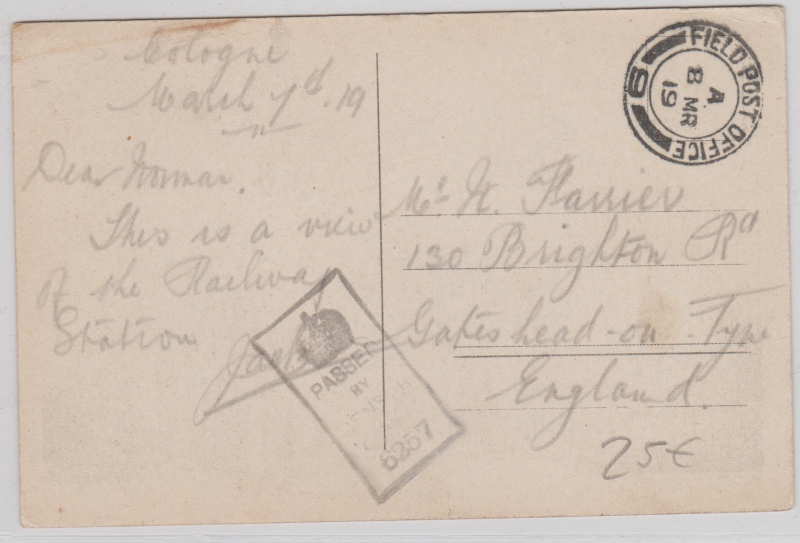 Cologne
March 7th. 19
Dear Norman.
This is a view
of the Railway
Station
FIELD POST OFFICE
6
A
8 MR
19
Mr N. Farrier
130 Brighton Rd
Gateshead-on-Tyne
England.
PASSED
BY
6257
25€